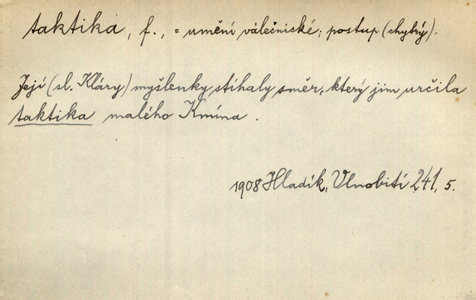 taktika, f., = umění válečnické; postup (chytrý).
Její (sl. Kláry) myšlenky stihaly směr, který jim určila
taktika malého Kmína.
1908 Hladík, Vlnobití 241, 5.